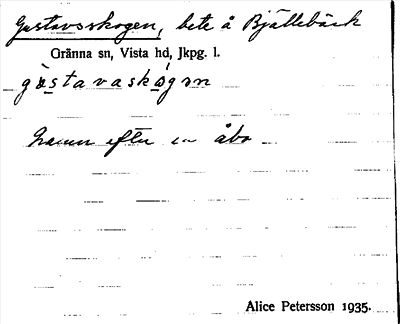 Gustavsskogen, bete å Bjällebäck
Gränna sn, Vista hd, Jkpg. l.
gɵstavaskogɘn
namn efter en åbo
Alice Petersson 1935.